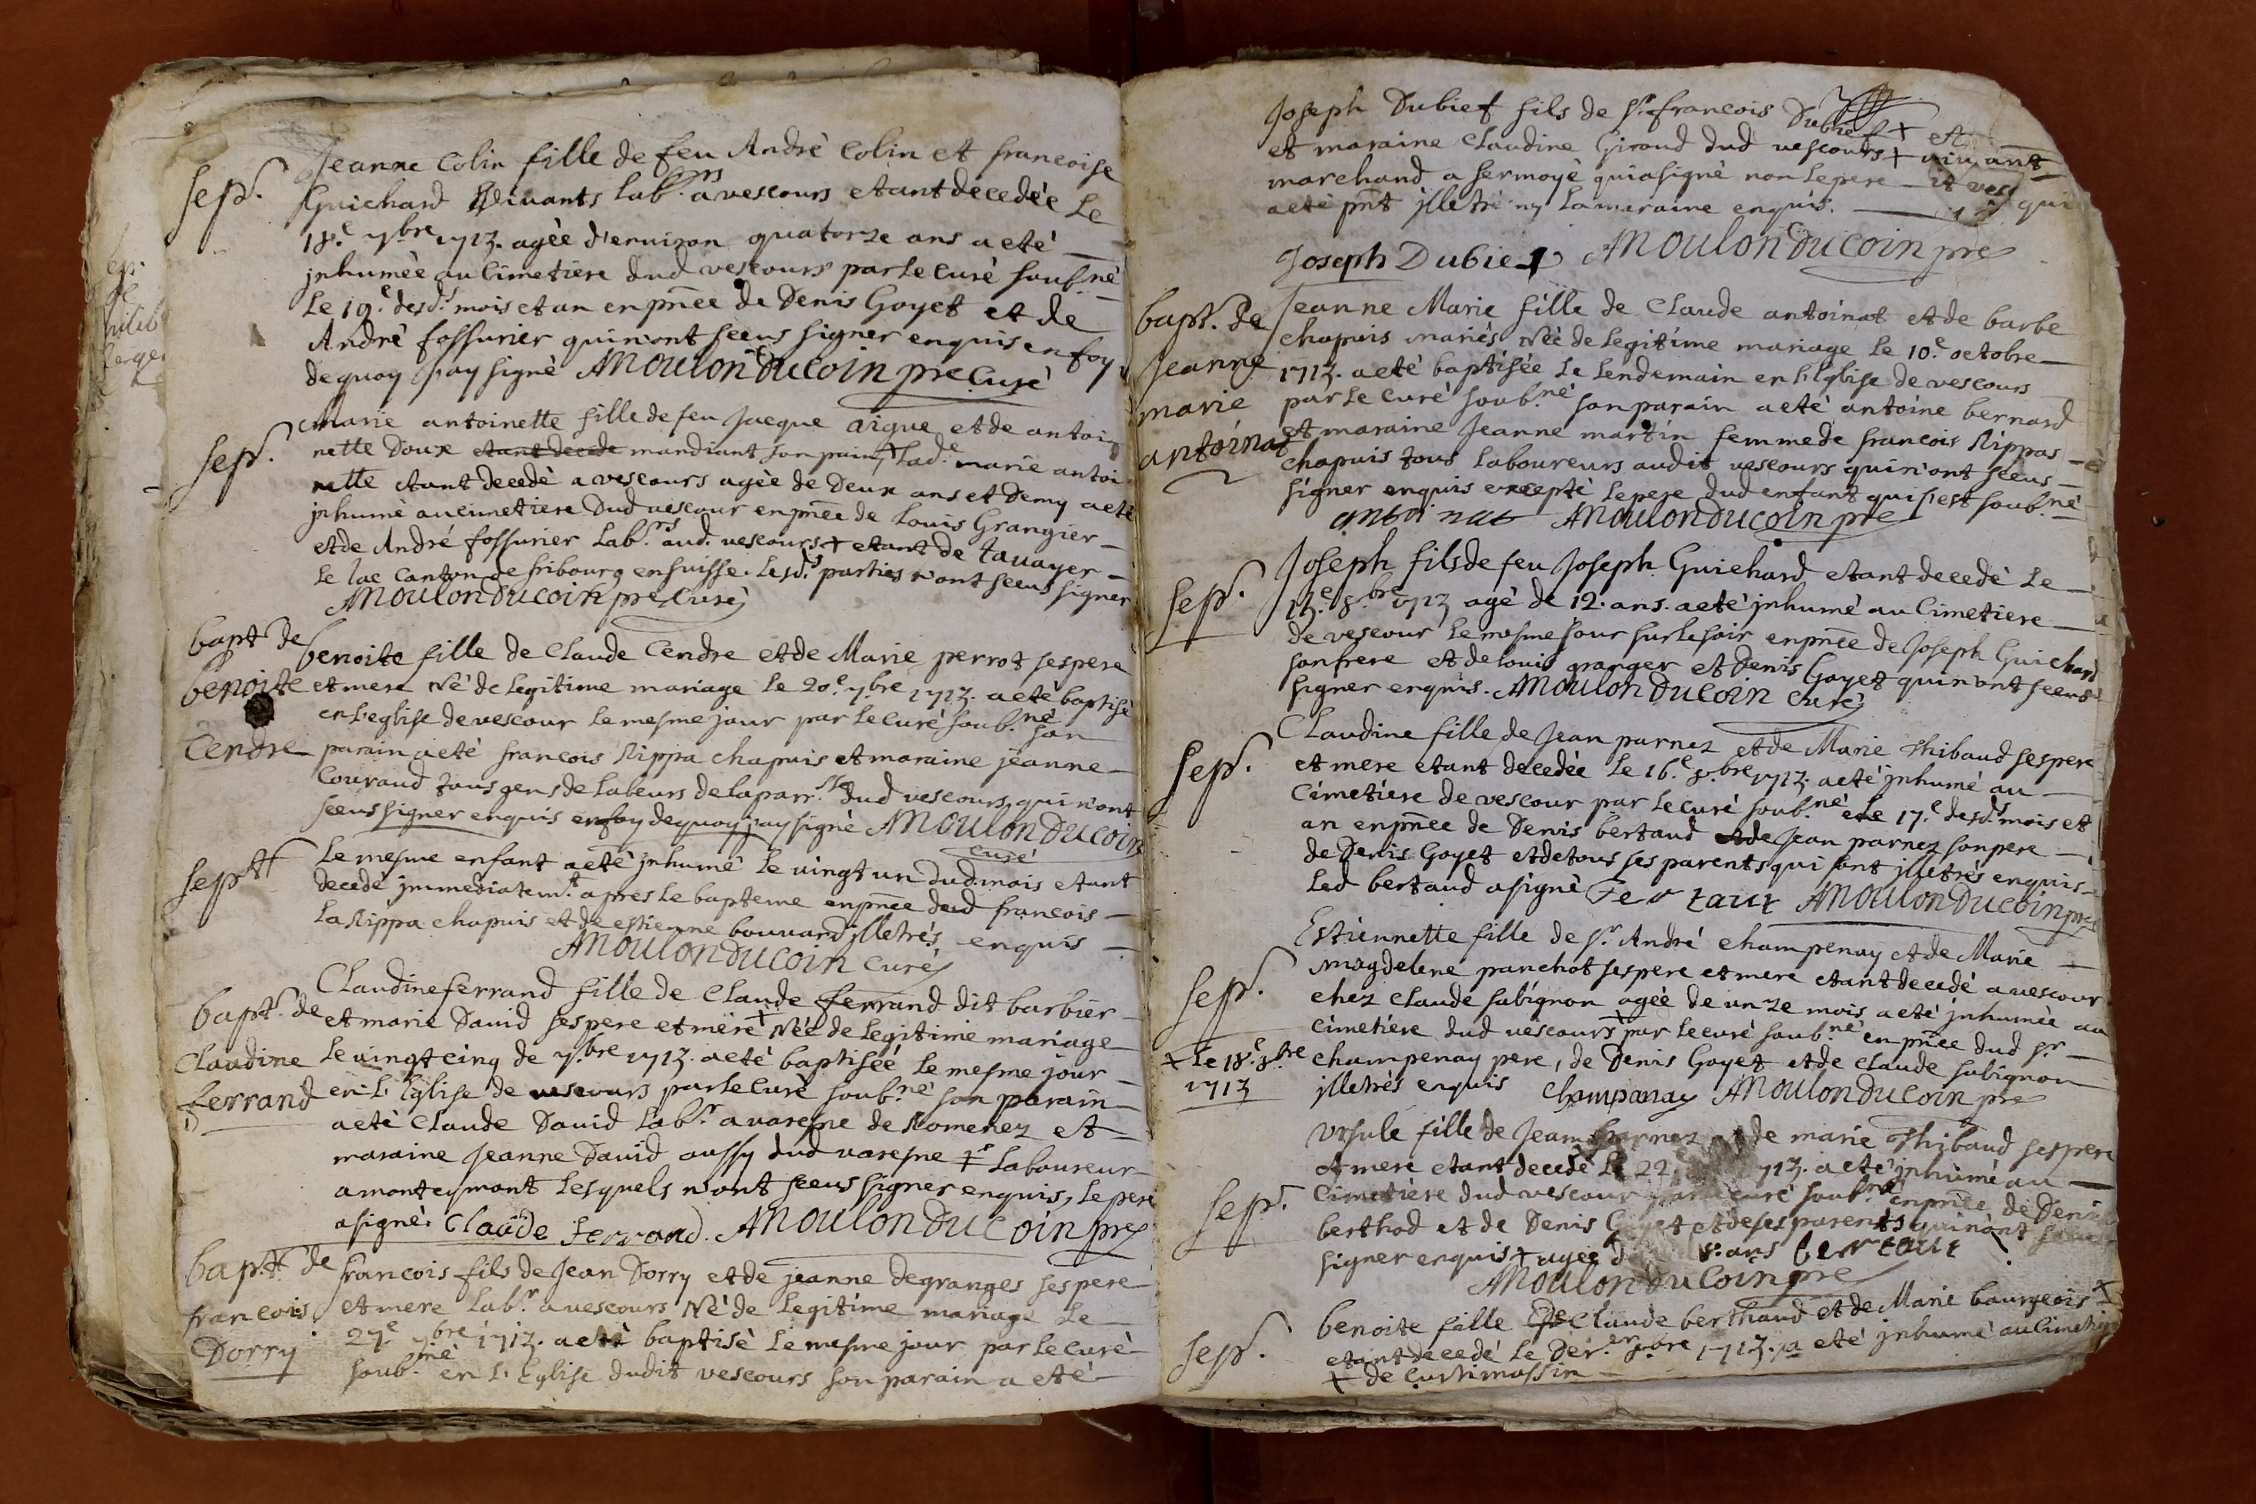 Jeanne Colin fille de feu Andrè Colin et francoise
sep.
Guichard vivants lab.rs a vescours etant decedèe le
18.e 7bre 1713. agèe d'environ quatorze ans a etè
jnhumèe au Cimetiere dud vescours par le curè soub.nè
le 19.e desd.s mois et an en pn̄ce de Denis Goyet et de
Andrè fossurier qui n'ont sceus signer enquis en foy
de quoy j'ay signè AMoulon Ducoin pre Curè
sep.
Marie antoinette fille de feu Jacque aigue et de antoi
nette Doux etant decede mandiant son pain, lad.e marie antoi
nette etant decedè a vescours agèe de Deux ans et Demy a etè
jnhumè au cimetiere Dud vescour en pn̄ce de Louis Grangier
et de Andrè fossurier Lab.rs aud. vescours + etant de tavayer
le lac Canton de fribourg en suisse. Lesd.s parties n'ont sceus signer
AMoulon Ducoin pre Curè
bapt de
benoite
Cendre
benoite fille de Claude Cendre et de Marie perrot ses pere
et mere Nè de legitime mariage le 20.e 7bre 1713. a etè baptisè
en l'eglise de vescour le mesme jour par le curè soub.nè son
parain a etè francois Rippa chapuis et maraine jeanne
Couraud tous gens de labeurs de la parr.sse dud vescours, qui n'ont
sceus signer enquis en foy de quoy j'ay signè AMoulon Ducoin
curé
sep.tt
Le mesme enfant a etè jnhumè le vingt un dud. mois etant
decedè jmmediatem.t apres le bapteme en pn̄ce dud francois
la Rippa chapuis et de estienne bouvard jlletrès enquis
AMoulon Ducoin Curè
bapt. de
Claudine
ferrand
Claudine ferrand fille de Claude ferrand dit barbier
et marie David ses pere et mere + Nèe de legitime mariage
le vingt cinq de 7.bre 1713. a etè baptisèe le mesme jour
en l'Eglise de vescours par le curè soub.nè son parain
a etè Claude David lab.r a varesne de Romenez et
maraine Jeanne David aussy dud varesne + laboureur
a monteymont lesquels n'ont sceus signer enquis, le pere
a signè. Claude Ferrand. AMoulon Du Coin pre
bap.tt de
francois
Dorry
francois fils de Jean Dorry et de jeanne degranges ses pere
et mere lab.r a vescours Nè de legitime mariage le
27.e 7bre 1713. a etè baptisè le mesme jour par le curè
soub.nè en l'Eglise dudit vescours son parain a etè
Joseph Dubief fils de s.r francois Dubief + et
et maraine Claudine Giroud dud vescours + vivant
marchand a sermoyè qui a signè non le pere
a etè pn̄t jlletrè ny la maraine enquis. qui
Joseph Dubief AMoulon Ducoin pre
bapt. de
Jeanne
marie
antoinat
Jeanne Marie fille de Claude antoinat et de barbe
chapuis mariès Nèe de legitime mariage le 10.e octobre
1713. a etè baptisèe le lendemain en l'Eglise de vescours
par le curè soub.nè son parain a etè antoine bernard
et maraine Jeanne martin femme de francois Rippas
chapuis tous laboureurs audit vescours qui n'ont sceus
signer enquis exceptè le pere dud enfant qui s'est soub.nè
antoi nat AMoulon Ducoin pre
sep.
Joseph fils de feu Joseph Guichard etant decedè le
13.e 8.bre 1713 agè de 12. ans. a etè jnhumè au Cimetiere
de vescour le mesme jour sur le soir en pn̄ce de Joseph Guichard
son frere et de louis granger et Denis Goyet qui n'ont sceus
signer enquis. AMoulon Ducoin Curè
sep.
Claudine fille de Jean parnez et de Marie Thibaud ses pere
et mere etant decedèe le 16.e 8.bre 1713. a etè jnhumè au
Cimetiere de vescour par le curè soub.nè le 17.e desd.s mois et
an en pn̄ce de Denis bertaud de Jean parnez son pere
de Denis Goyet et de tous ses parents qui sont jlletrès enquis
led bertaud a signè Bertaut AMoulon Ducoin pre
sep.
Estiennette fille de s.r Andrè Champenay et de Marie
magdelene panchot ses pere et mere etant decedè a vescour
chez Claude subignon agèe de unze mois a etè jnhumèe au
cimetiere dud vescours + par le curè soub.nè en pn̄ce dud s.r
+ Le 18.e 8.bre
1713
champenay pere, de Denis Goyet et de Claude subignon
jlletrès enquis Champanay AMoulon Du Coin pre
sep.
Vrsule fille de Jean parnez et de marie Thibaud ses pere
et mere etant decedè le 22. 713. a etè jnhumè au
Cimetiere dud vescour par le curè soub.nè en pn̄ce de Denis
berthod et de Denis Goyet et de ses parents qui n'ont sceus
signer enquis + agèe ans bertaut
AMoulon Du Coin pre
sep.
benoite fille de Claude berthaud et de Marie bourgeois +
etant decedè le Der.er 8.bre 1713. a etè jnhumè au Cimetiere
+ de Curtimassin